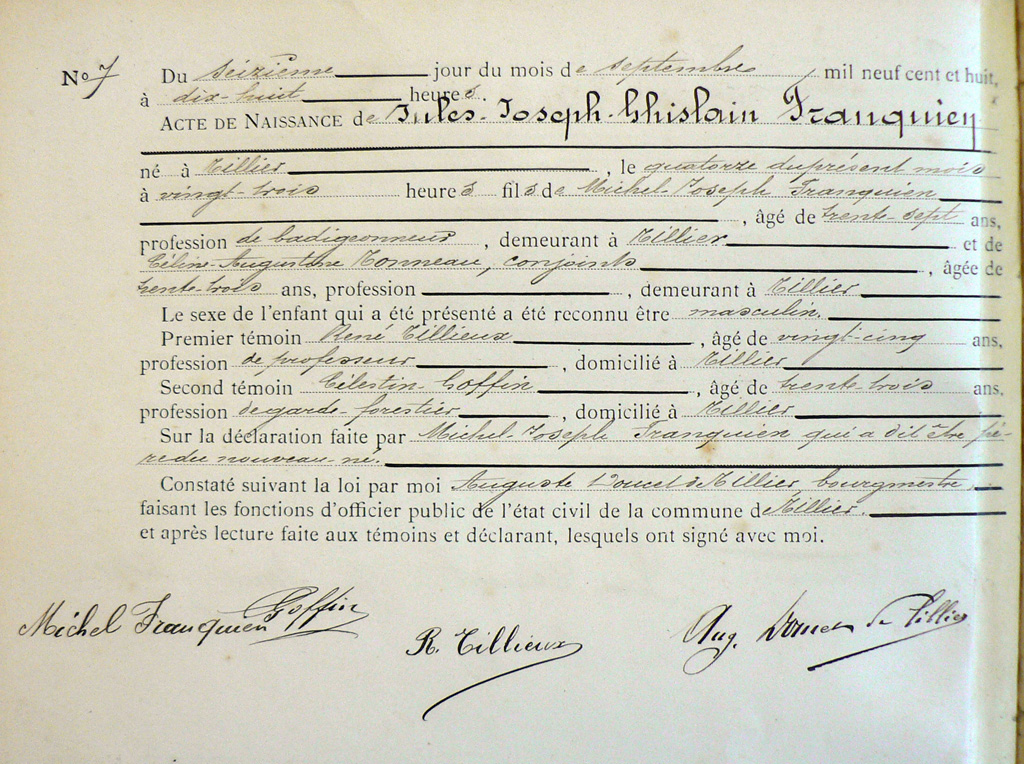 Nº 7 Du seizième jour du mois de septembre mil neuf cent et huit,
à dix-huit heures.
ACTE DE NAISSANCE de Jules-Joseph-Ghislain Franquien
né à Tillier, le quatorze du présent mois
à vingt-trois heures fils de Michel-Joseph Franquien
, âgé de trente-sept ans,
profession de badigeonneur, demeurant à Tillier et de
Céline-Augustine Tonneau, conjoints, âgée de
trente-trois ans, profession , demeurant à Tillier
Le sexe de l'enfant qui a été présenté a été reconnu être masculin.
Premier témoin René Tillieux, âgé de vingt-cinq ans,
profession de professeur, domicilié à Tillier
Second témoin Célestin Goffin, âgé de trente-trois ans,
profession de garde-forestier, domicilié à Tillier
Sur la déclaration faite par Michel-Joseph Franquien qui a dit être pè-
re du nouveau-né.
Constaté suivant la loi par moi Auguste Doucet de Tillier, bourgmestre,
faisant les fonctions d'officier public de l'état civil de la commune de Tillier.
et après lecture faite aux témoins et déclarant, lesquels ont signé avec moi.
Michel Franquien Goffin
R. Tillieux
Aug. Doucet de Tillier